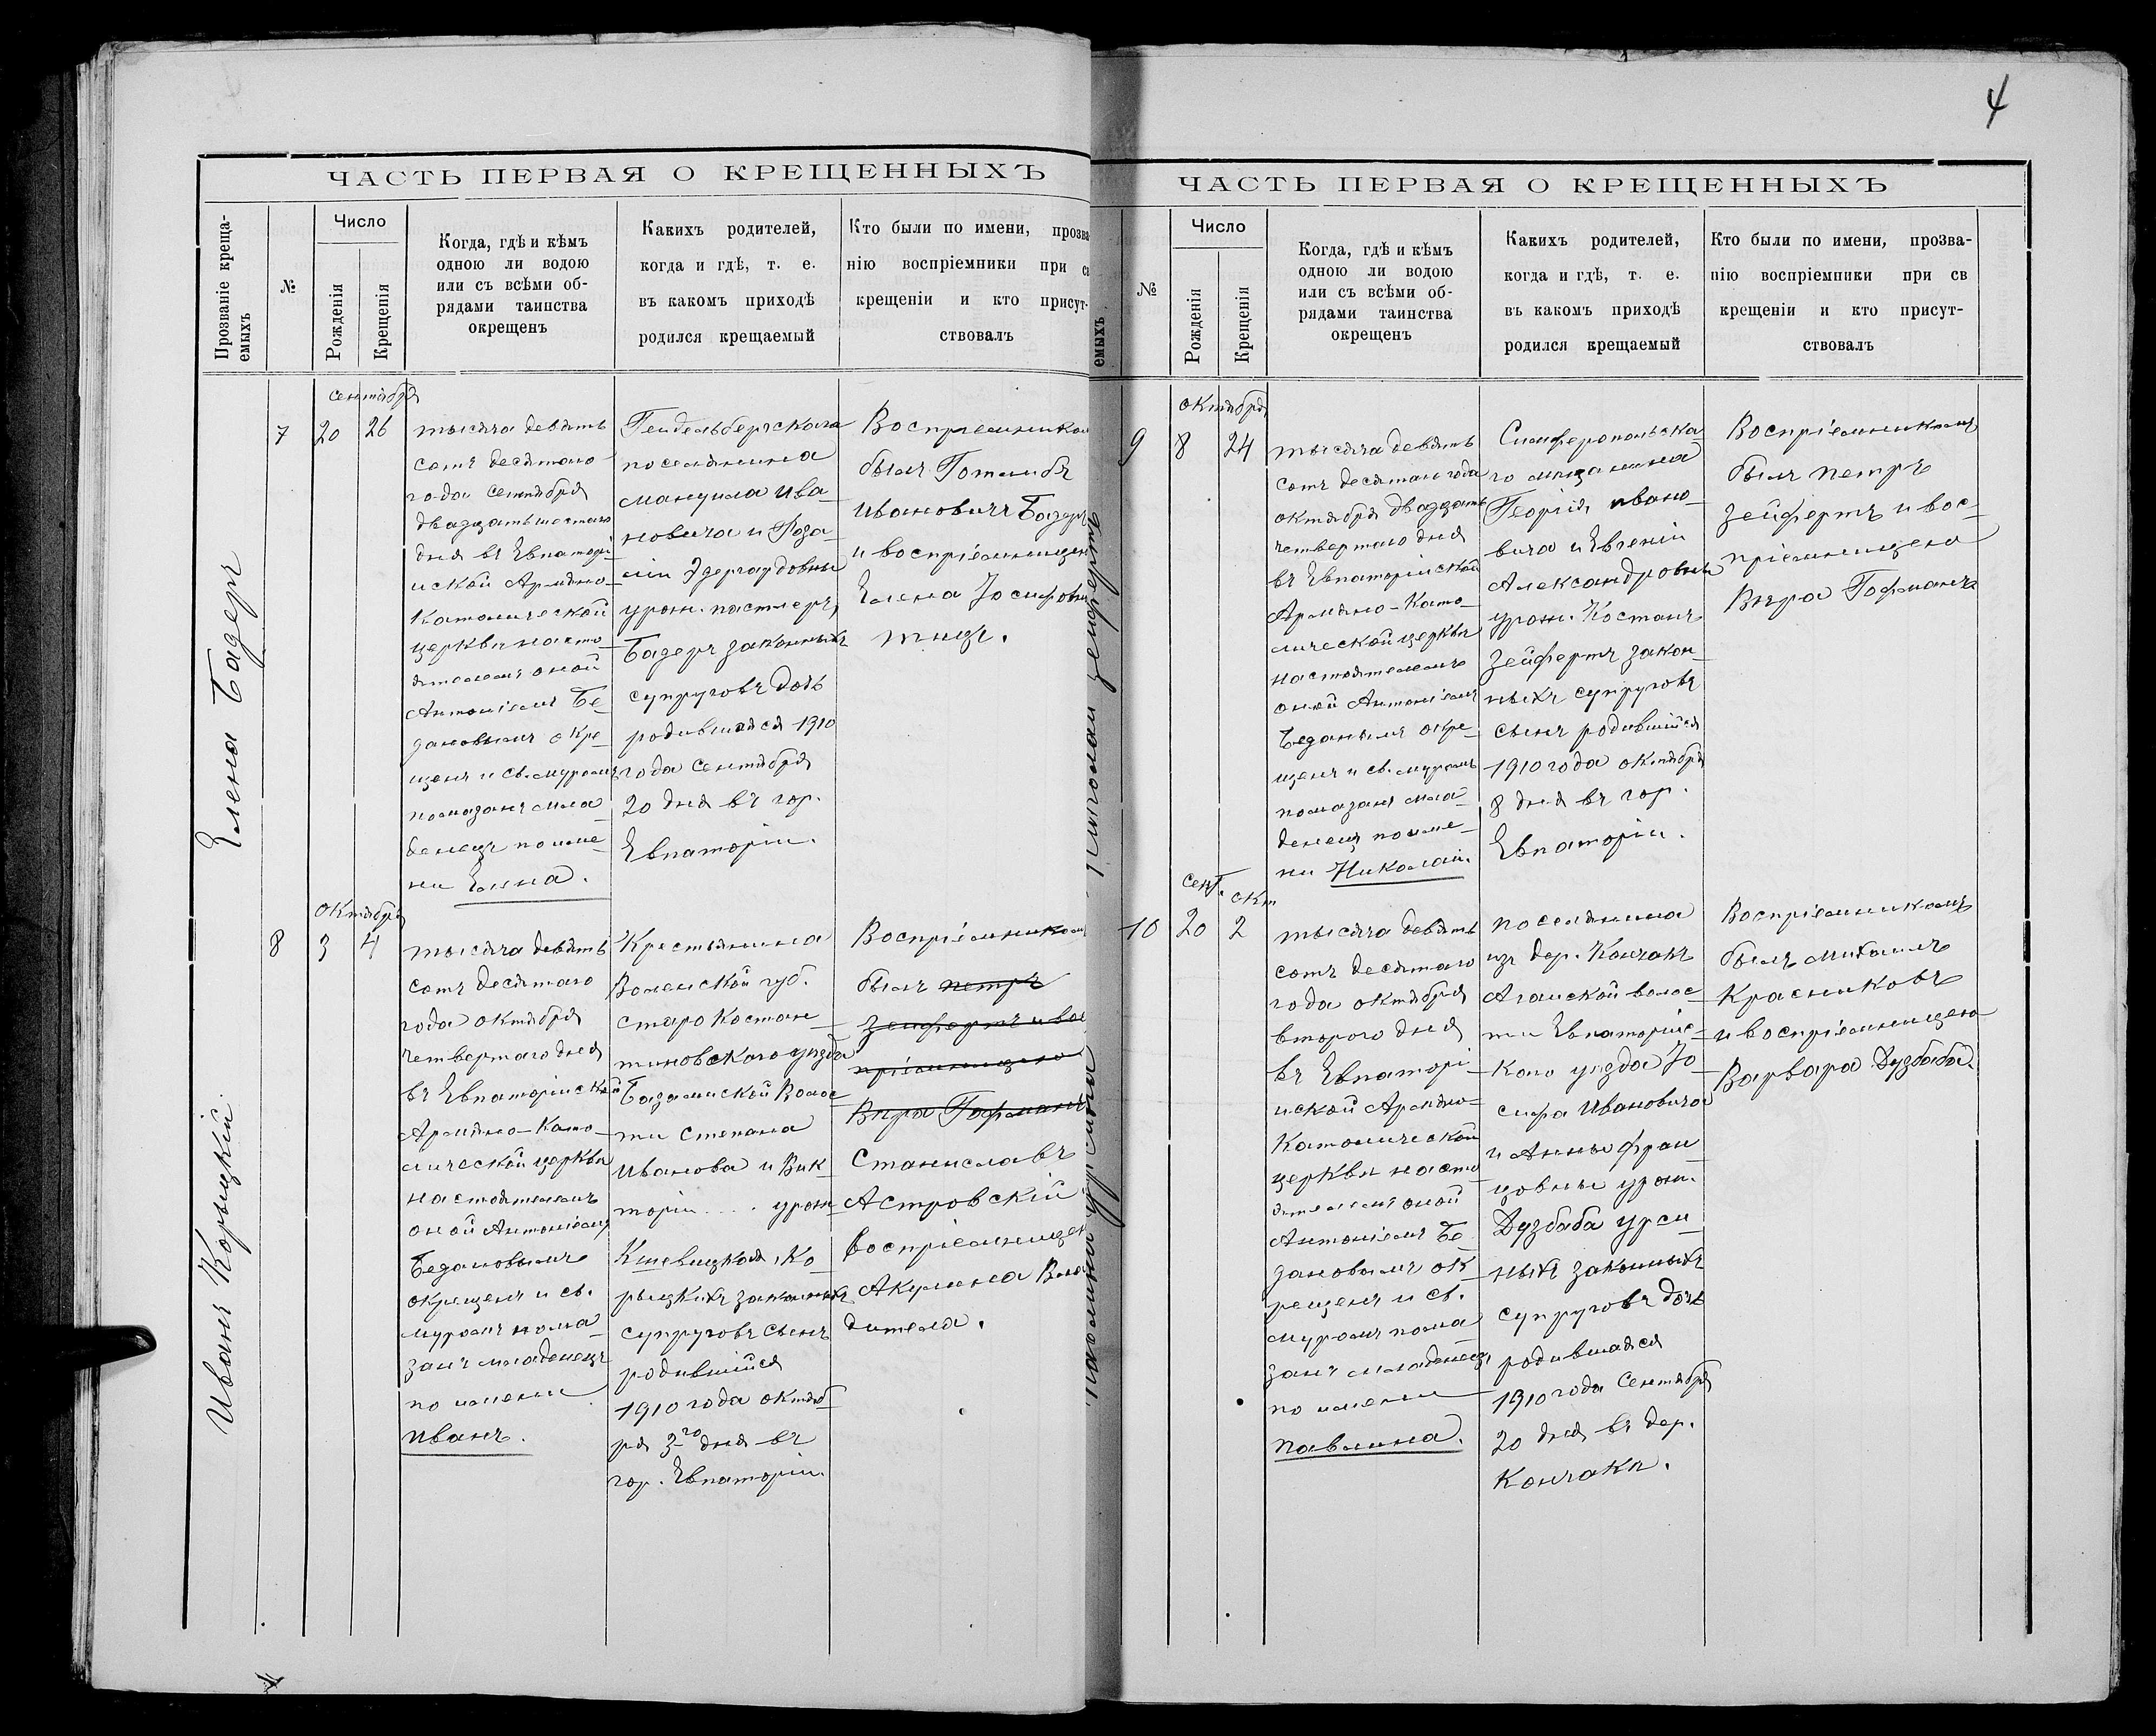 ЧАСТЬ ПЕРВАЯ О КРЕЩЕННЫХЪ
Прозваніе креща-
емыхъ
№
Число
Рожденія
Крещенія
Когда, гдѣ и кѣмъ
одною ли водою
или съ всѣми об-
рядами таинства
окрещенъ
Какихъ родителей,
когда и гдѣ, т. е.
въ какомъ приходѣ
родился крещаемый
Кто были по имени, прозва-
нію воспріемники при св
крещеніи и кто присут-
ствовалъ
Елена Бадеръ
7
сентября
20
26
тысяча девять
сотъ десятаго
года сентября
двадцать шестаго
дня въ Евпаторі-
иской Армяно-
Католической
церкви насто-
ятелемъ оной
Антоніемъ Бе-
дановымъ окре-
щенъ и св. муромъ
помазанъ мла-
денецъ по име-
ни Елена.
Гейдельбергскаго
поселянина
Мануила Ива-
новича и Роза-
ліи Эдергардовны
урож. пастлеръ,
Бадеръ законныхъ
супруговъ дочь
родившаяся 1910
года сентября
20 дня въ гор.
Евпаторіи.
Воспріемникомъ
былъ Готлибъ
Ивановичъ Бадеръ
и воспріемницею
Елена Іосифовна
тицъ.
Иванъ Корыцкій.
8
октября
3
4
тысяча девять
сотъ десятаго
года октября
четвертаго дня
въ Евпаторійской
Армяно-Като-
лической церкви
настоятелемъ
оной Антоніемъ
Бедановымъ
окрещенъ и св.
муромъ пома-
занъ младенецъ
по имени
Иванъ.
Крестьянина
Воленской губ.
старо Костан-
тиновскаго уѣзда
Базалиской Волос-
ти Степана
Иванова и Вик-
торіи .... урож-
Кшевицкая, Ко-
рыцкихъ законныхъ
супруговъ сынъ
родившійся
1910 года октяб-
ря 3-го дня въ
гор. Евпаторіи.
Воспріемникомъ
былъ петръ
Зейфертъ и вос-
пріемницею
Вѣра Гофманъ
Станиславъ
Астровскій
воспріемницею
Акулина Вла-
дителa.
4
ЧАСТЬ ПЕРВАЯ О КРЕЩЕННЫХЪ
емыхъ
№
Число
Рожденія
Крещенія
Когда, гдѣ и кѣмъ
одною ли водою
или съ всѣми об-
рядами таинства
окрещенъ
Какихъ родителей,
когда и гдѣ, т. е.
въ какомъ приходѣ
родился крещаемый
Кто были по имени, прозва-
нію воспріемники при св
крещеніи и кто присут-
ствовалъ
Николай Зейфертъ
9
октября
8
24
тысяча девять
сотъ десятаго года
октября двадцать
четвертаго дня
въ Евпаторійской
Армяно-Като-
лической церкви
настоятелемъ
оной Антоніемъ
Беданымъ окре-
щенъ и св. муромъ
помазанъ мла-
денецъ по име-
ни Николай.
Симферопольска-
го мѣщанина
Георгія Ивано-
вича и Евгеніи
Александровны
урож. Костанъ
Зейфертъ закон-
ныхъ супруговъ
сынъ родившійся
1910 года октября
8 дня въ гор.
Евпаторіи.
Воспріемникомъ
былъ петръ
Зейфертъ и вос-
пріемницею
Вѣра Гофманъ
Павлина Урсина
10
сент.
20
окт
2
тысяча девять
сотъ десятаго
года октября
второго дня
въ Евпаторі-
иской Армяно-
Католической
церкви насто-
ятелемъ оной
Антоніемъ Бе-
дановымъ ок-
рещенъ и св.
муромъ пома-
занъ младенецъ
по имени
Павлина.
поселянина
изъ дер. Кончакъ
Агаиской волос-
ти Евпаторійс-
каго уѣзда Іо-
сифа Ивановича
и Анны Фран-
цовны урож.
Дузбаба урси-
ныхъ законныхъ
супруговъ дочь
родившаяся
1910 года Сентября
20 дня въ дер.
Кончакъ.
Воспріемникомъ
былъ Михаилъ
Красниковъ
и воспріемницею
Варвара Дузбаба.